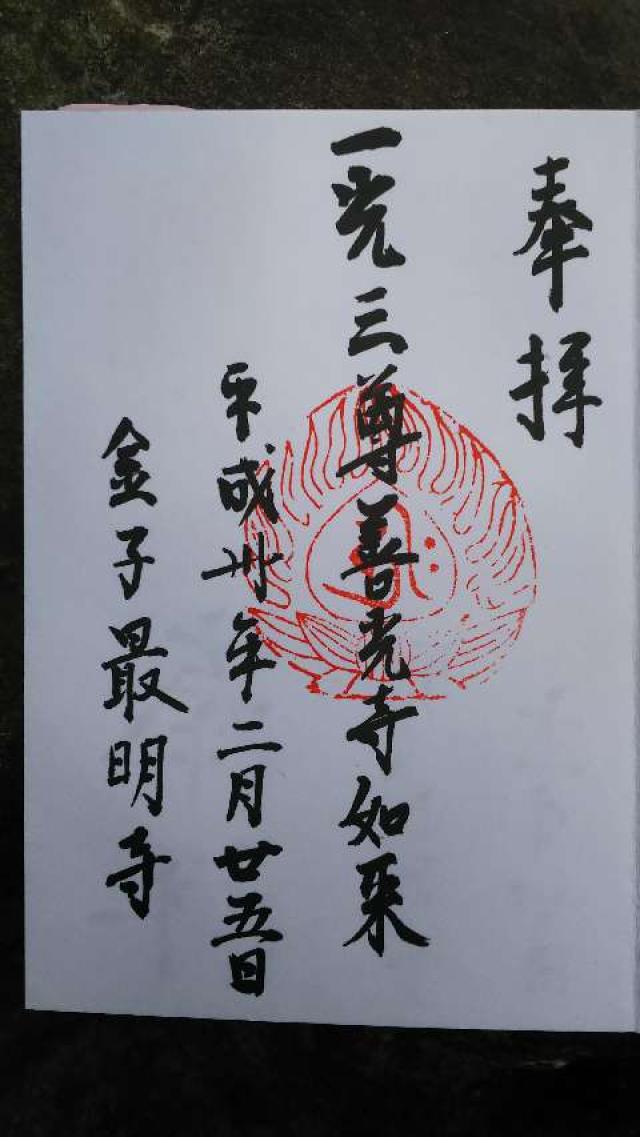 奉拝
一光三尊善光寺如来
平成卅年二月廿五日
金子最明寺